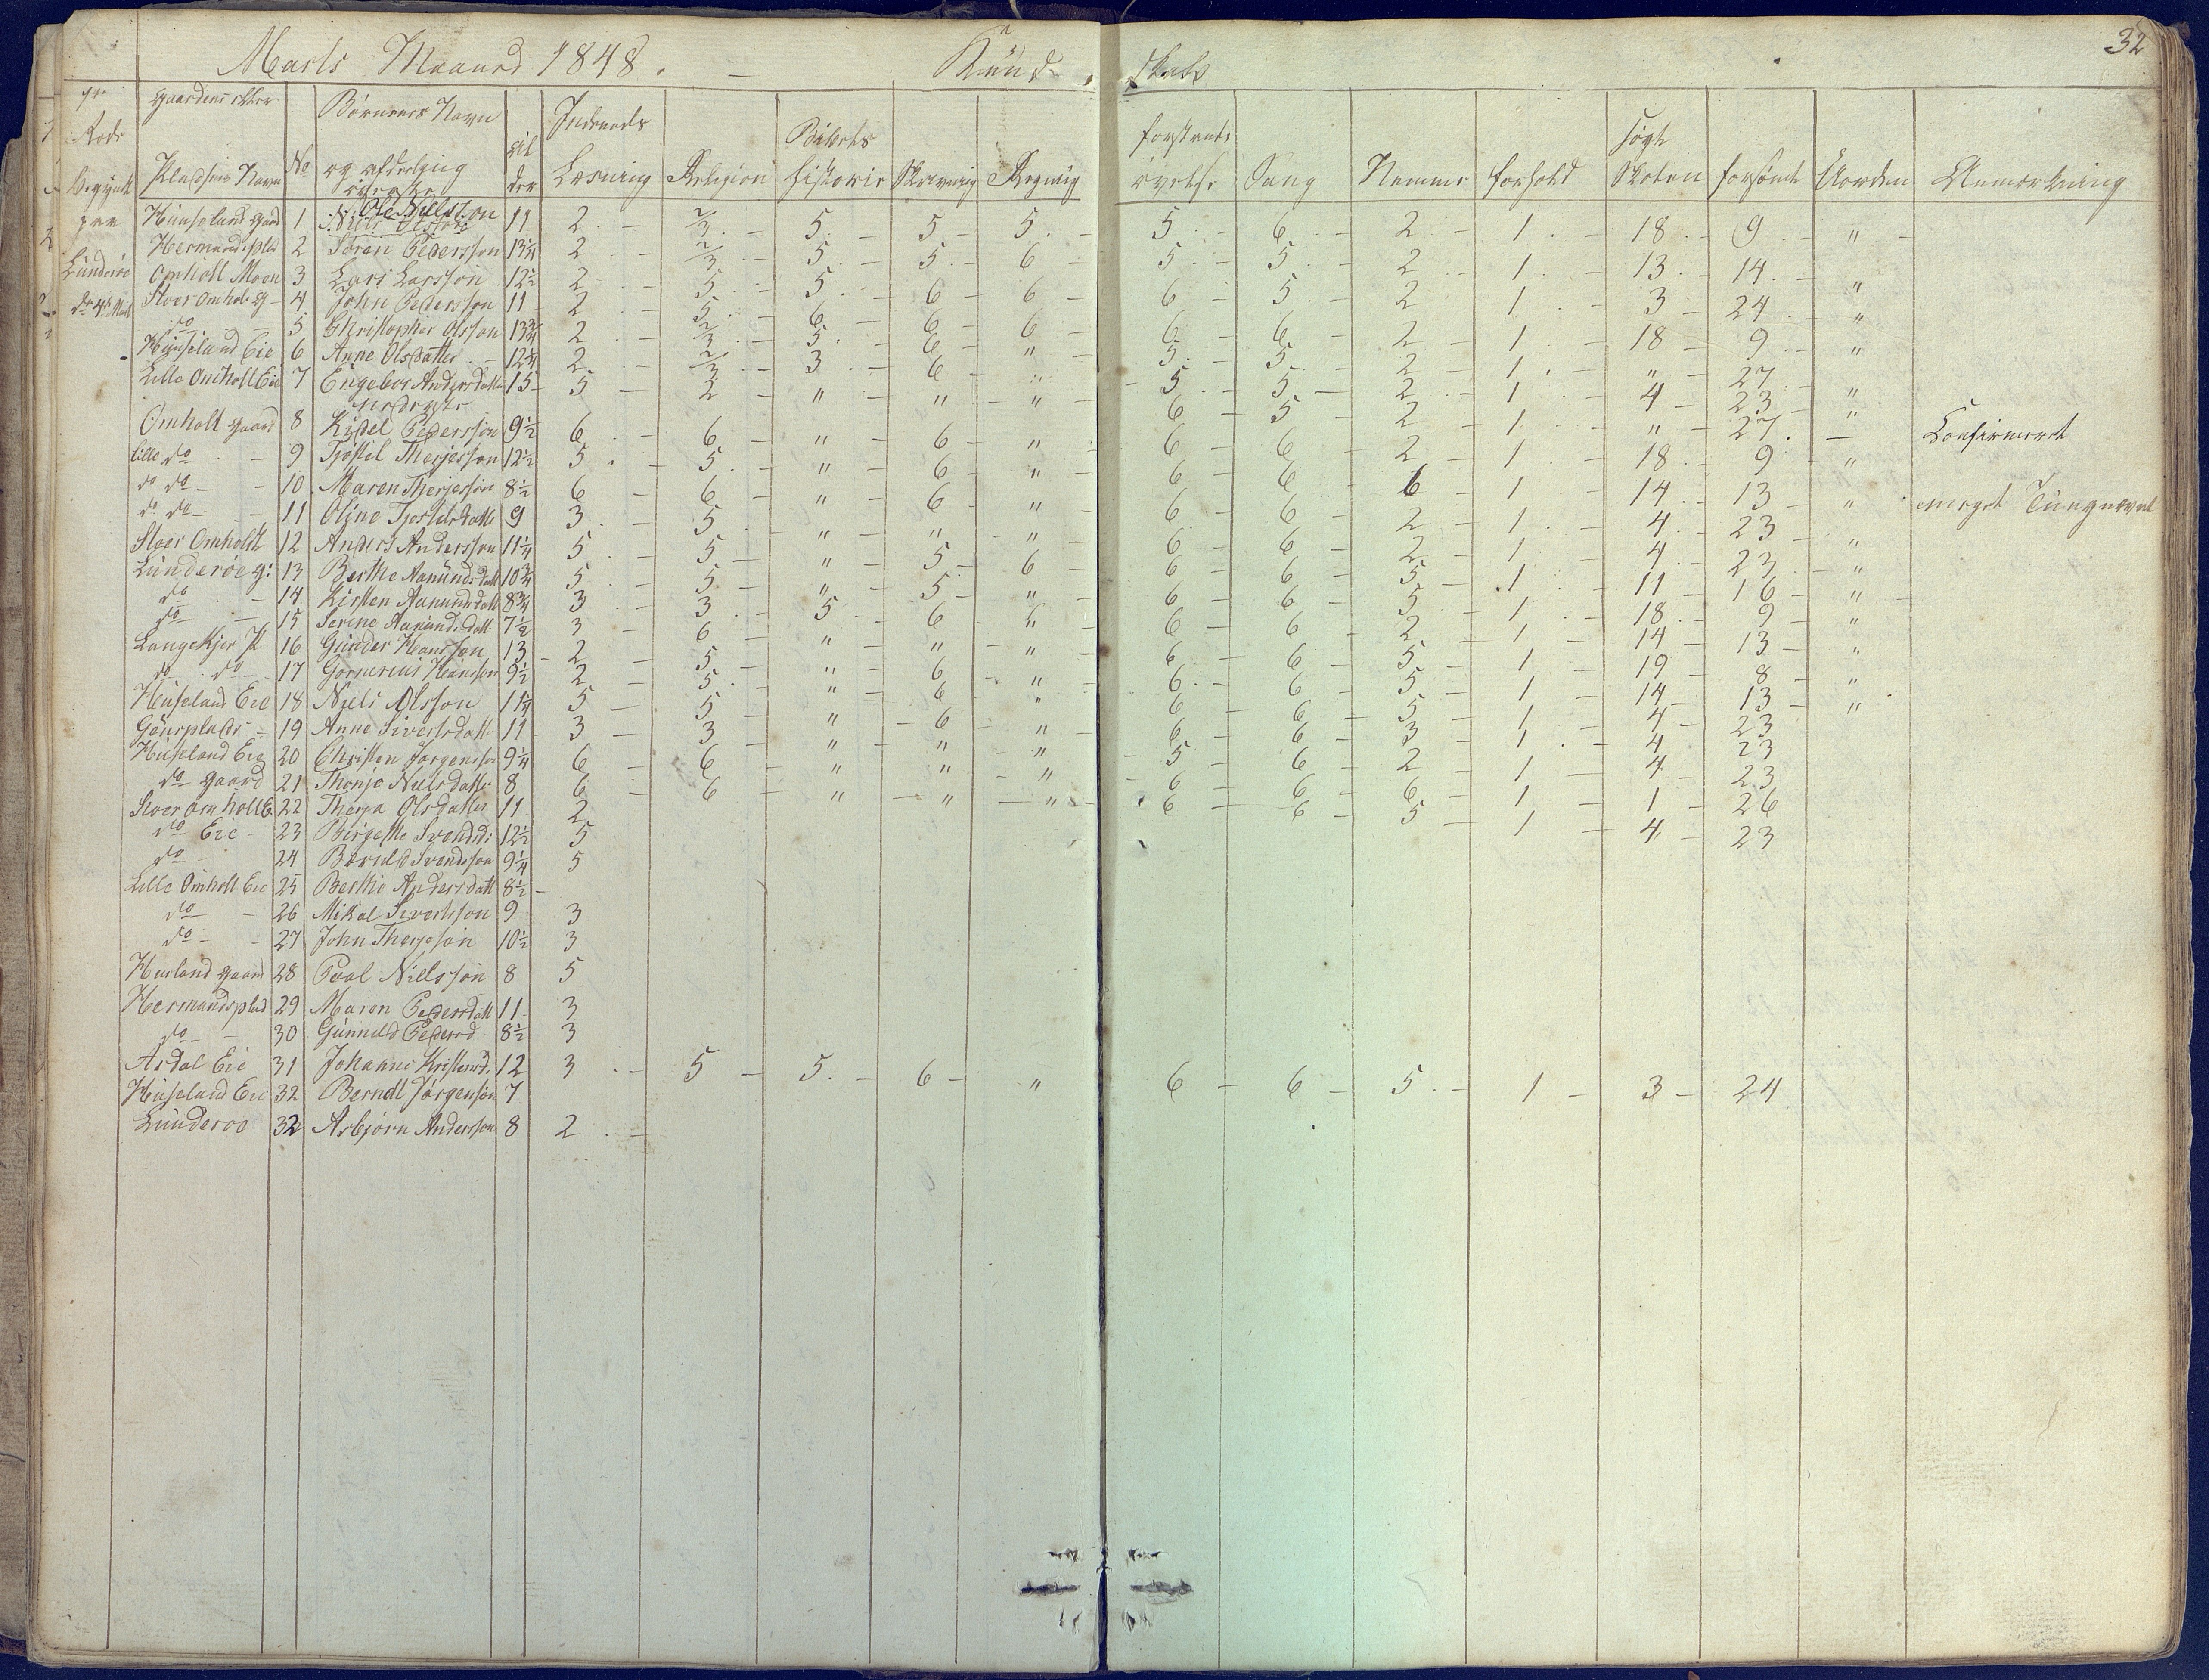 Marts Maaned 1848. — Kund- skabs 32
Rode Begyndt paa Lunderöe
Gaardens eller Pladsens Navn No Børnenes Navn og afdeling Al der Indenads Læsning Religion Bibels historie Skrivning Regning forstands øvelse Sang Nemme forhold søgt Skolen forsömt Uorden Anmærkning
øverste
Ole Nielsson
Huuseland gaard 1 Niels Olsson 11 2 2/3 5 5 5 5 6 2 1 18 9 "
Hermandsplad 2 Sören Pedersson 13¼ 2 2/3 5 5 6 5 5 2 1 13 14 "
Omholt Moen 3 Lars Larsson 12½ 2 5 5 6 6 6 5 2 1 3 24 "
Stoer Omholt g 4 John Pedersson 11 2 5 6 6 6 6 6 2 1 18 9 "
do 5 Christopher Olsson 13¾ 2 2/3 5 6 " 5 5 2 1 " 27 "
Huuseland Eie 6 Anne Olsdatter 12¼ 2 2/3 3 6 " 5 5 2 1 4 23 "
Lille Omholt Eie 7 Engebor Andersdatter 15 5 2 " " " 6 5 2 1 " 27 — Confirmeret
nederste
Omholt gaard 8 Kidel Pedersson 9½ 6 6 " 6 " 6 6 2 1 18 9 "
Lille do 9 Tjöstel Therjesson 12½ 5 5 " 6 " 6 6 6 1 14 13 " meget Tungnæmt
do do 10 Maren Therjesson 8½ 6 6 " 6 " 6 6 2 1 4 23 "
do do 11 Oline Tjostelsdatte 9 3 5 " " " 6 6 2 1 4 23 "
Stoer Omholdt 12 Anders Andersson 11¼ 5 5 " 5 6 6 6 5 1 11 16 "
Lunderöe g: 13 Berthe Aanundsdatt 10¾ 5 5 " 5 " 6 6 5 1 18 9 "
do 14 Kirsten Aanundsdatt 8¾ 3 3 5 6 6 6 6 2 1 14 13 "
do 15 Serine Aanundsdatt 7½ 3 6 " " " 6 6 5 1 19 8 "
Langekjer Pl 16 Gunder Hansson 13 2 5 " 6 " 6 6 5 1 14 13 "
do do 17 Gornerius Hansson 9½ 2 5 " 6 " 6 6 5 1 4 23
Huuseland Eie 18 Niels Olsson 11¼ 5 5 " 6 " 6 6 3 1 4 23
Göursplads 19 Anne Sivertsdatte 11 3 3 " " " 5 6 2 1 4 23
Huuseland Eie 20 Christen Jorgensson 9¼ 6 6 " " " 6 6 6 1 1 26
do gaard 21 Thonje Nielsdatte 8 6 6 " " " 6 6 5 1 4 23
Stoer Omholt E 22 Therja Olsdatter 11 2
do Eie 23 Birgette Svendsd: 12½ 5
do 24 Bæruld Svendsson 9¼ 5
Lille Omholt Eie 25 Berthe Andersdatt 8½ —
do 26 Mikal Sivertsson 9 3
do 27 John Therjeson 10½ 3
Husland gaard 28 Poal Nielsson 8 5
Hermandsplad 29 Maren Pedersdatt 11 3
do 30 Gunneld Pedersd 8½ 3
Asdal Eie 31 Johanne Kristensd: 12 3 5 5 6 " 6 6 5 1 3 24
Huuseland Eie 32 Berndt Jörgenson 7
Lunderoo 32 Asbjörn Andersson 8 2